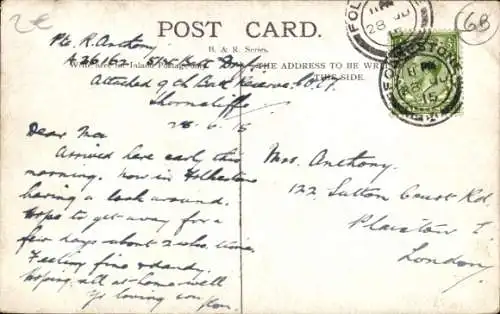 2€
68
POST CARD.
B. & R. Series.
THE ADDRESS TO BE
THIS SIDE.
FOLKESTONE
28 JU
15
Pte R. Anthony
A 26162
Attached 9th Batt Reserve
Shorncliffe
28-6-15
Dear Ma
Arrived here early this
morning. now in Folkestone
having a look around.
Hope to get away for a
few days about 2 wks time
Feeling fine & dandy
hoping all at home well
Yr loving son
Mrs. Anthony.
122 Sutton Court Rd.
Plaistow E
London